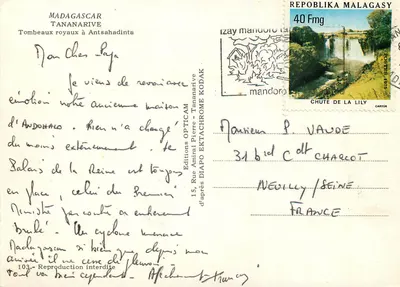 MADAGASCAR
TANANARIVE
Tombeaux royaux à Antsahadinta
Mon Cher Papa
Je viens de revoir avec
émotion notre ancienne maison
d'ANDOHALO. Rien n'a changé
du moins extérieurement. Le
Palais de la Reine est toujours
en place, celui du Premier
Ministre par contre a entièrement
brûlé. Un cyclone menace
Madagascar si bien que, depuis mon
arrivée il ne cesse de pleuvoir.
Tout va bien cependant. Affectueusement
103 - Reproduction interdite
Editions OPTICAM
15, Rue Amiral Pierre - Tananarive
d'après DIAPO EKTACHROME KODAK
izay mandoro
mandoro
REPOBLIKA MALAGASY
40 Fmg
CHUTE DE LA LILY
Monsieur P. VAUDE
31 bis Cdt CHARCOT
NEUILLY/SEINE
FRANCE